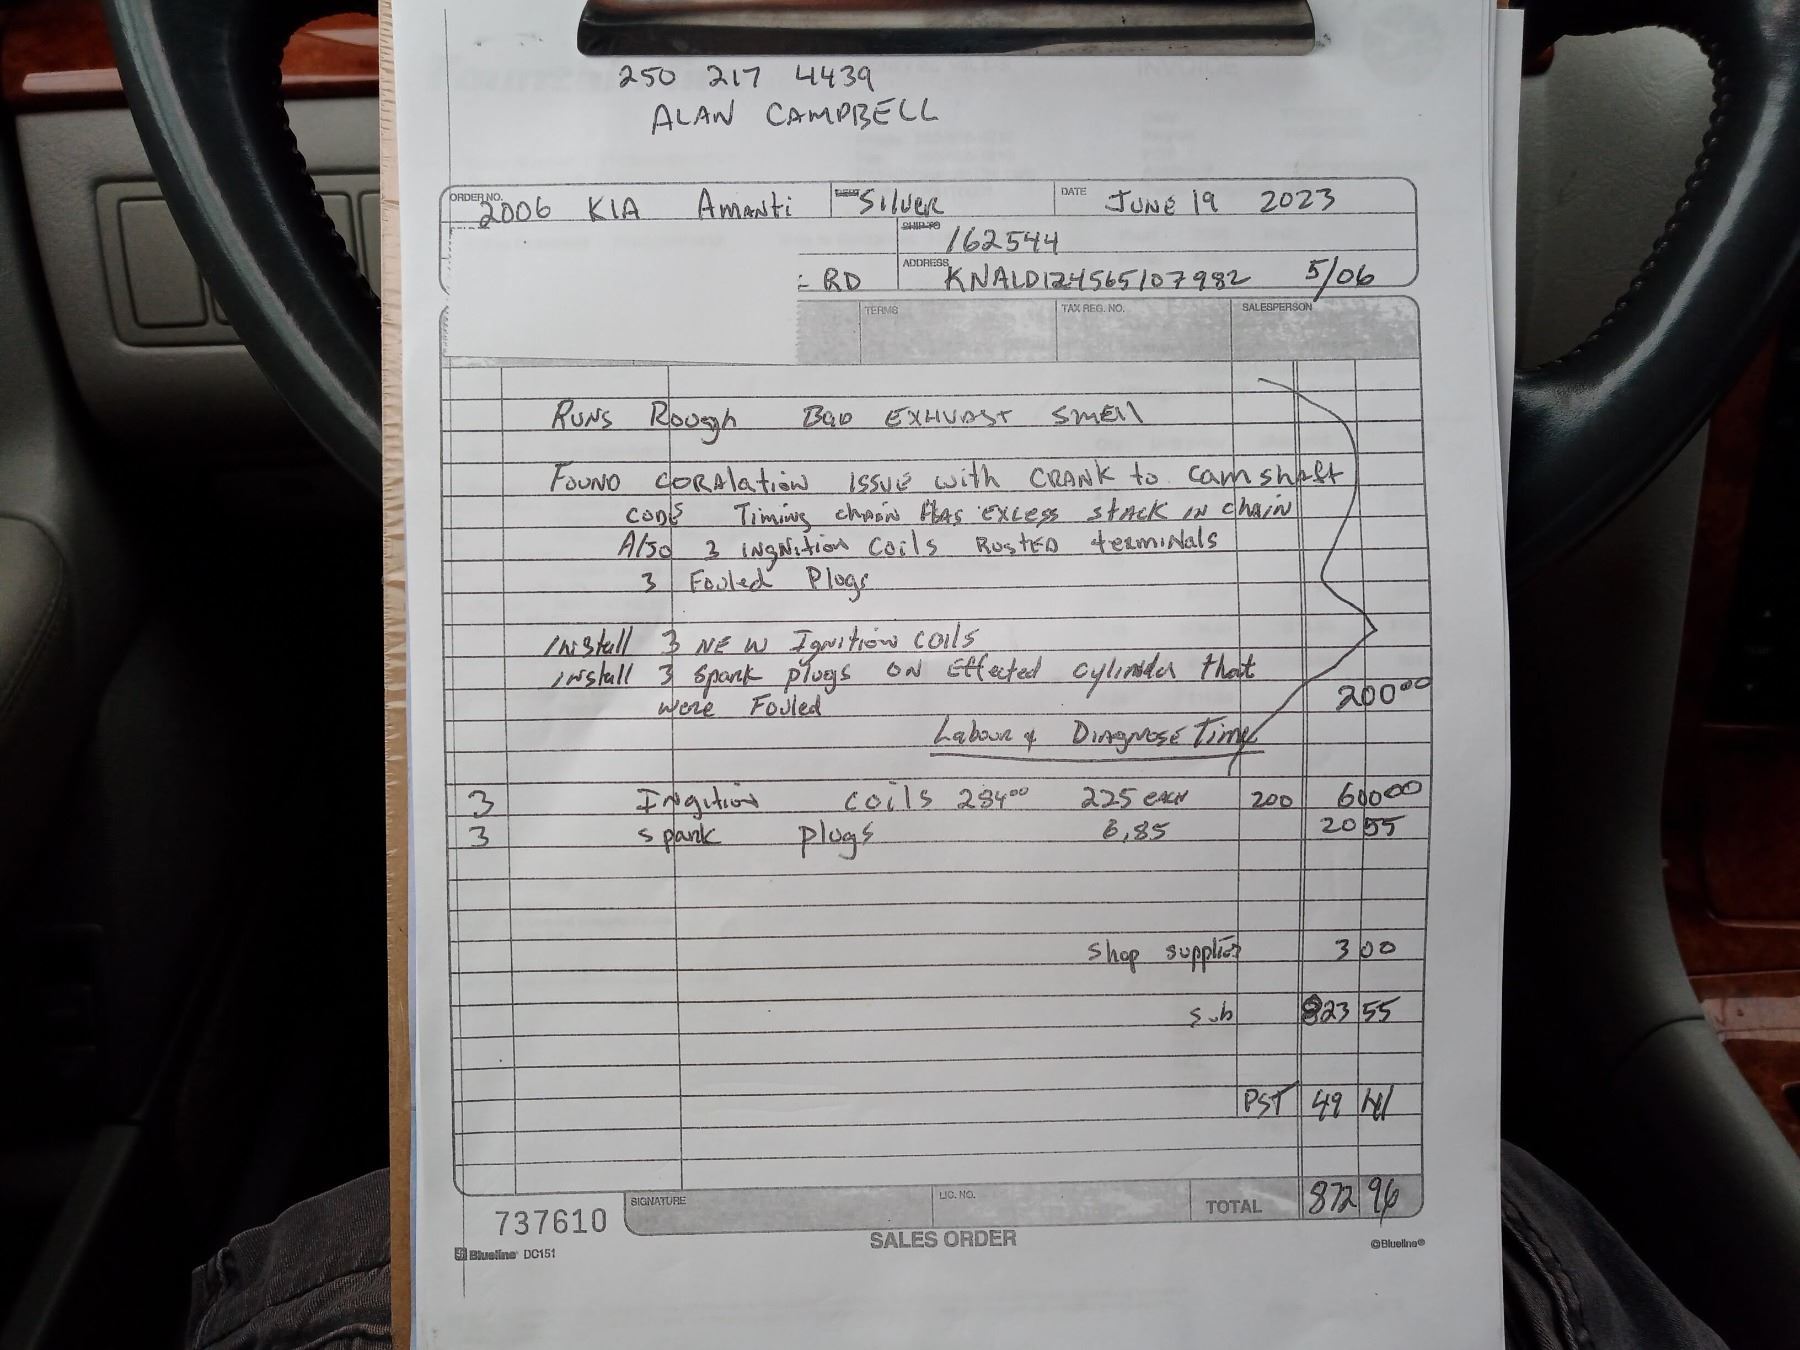 250 217 4439
ALAN CAMPBELL
ORDER NO. 2006 KIA Amanti Silver DATE JUNE 19 2023
SHIP TO 162544
RD ADDRESS KNALD124565107982 5/06
TERMS TAX REG. NO. SALESPERSON
RUNS Rough BAD EXHUAST SMEll
FOUND CORAlation ISSUE with CRANK to camshaft
CODES Timing chain HAS EXCESS StACK IN chain
Also 3 INgNition Coils RUSTED terminals
3 Fouled Plugs
INStall 3 NEW Ignition COils
install 3 spark plugs ON Effected cylinder that
were Fouled 200 00
Labour & DIAGNOSE Time
3 INgition coils 284 00 225 EACH 200 600 00
3 spark plugs 6,85 20 55
shop supplies 3 00
sub 823 55
PST 49 41
737610 SIGNATURE LIC. NO. TOTAL 872 96
Blueline DC151 SALES ORDER ©Blueline®